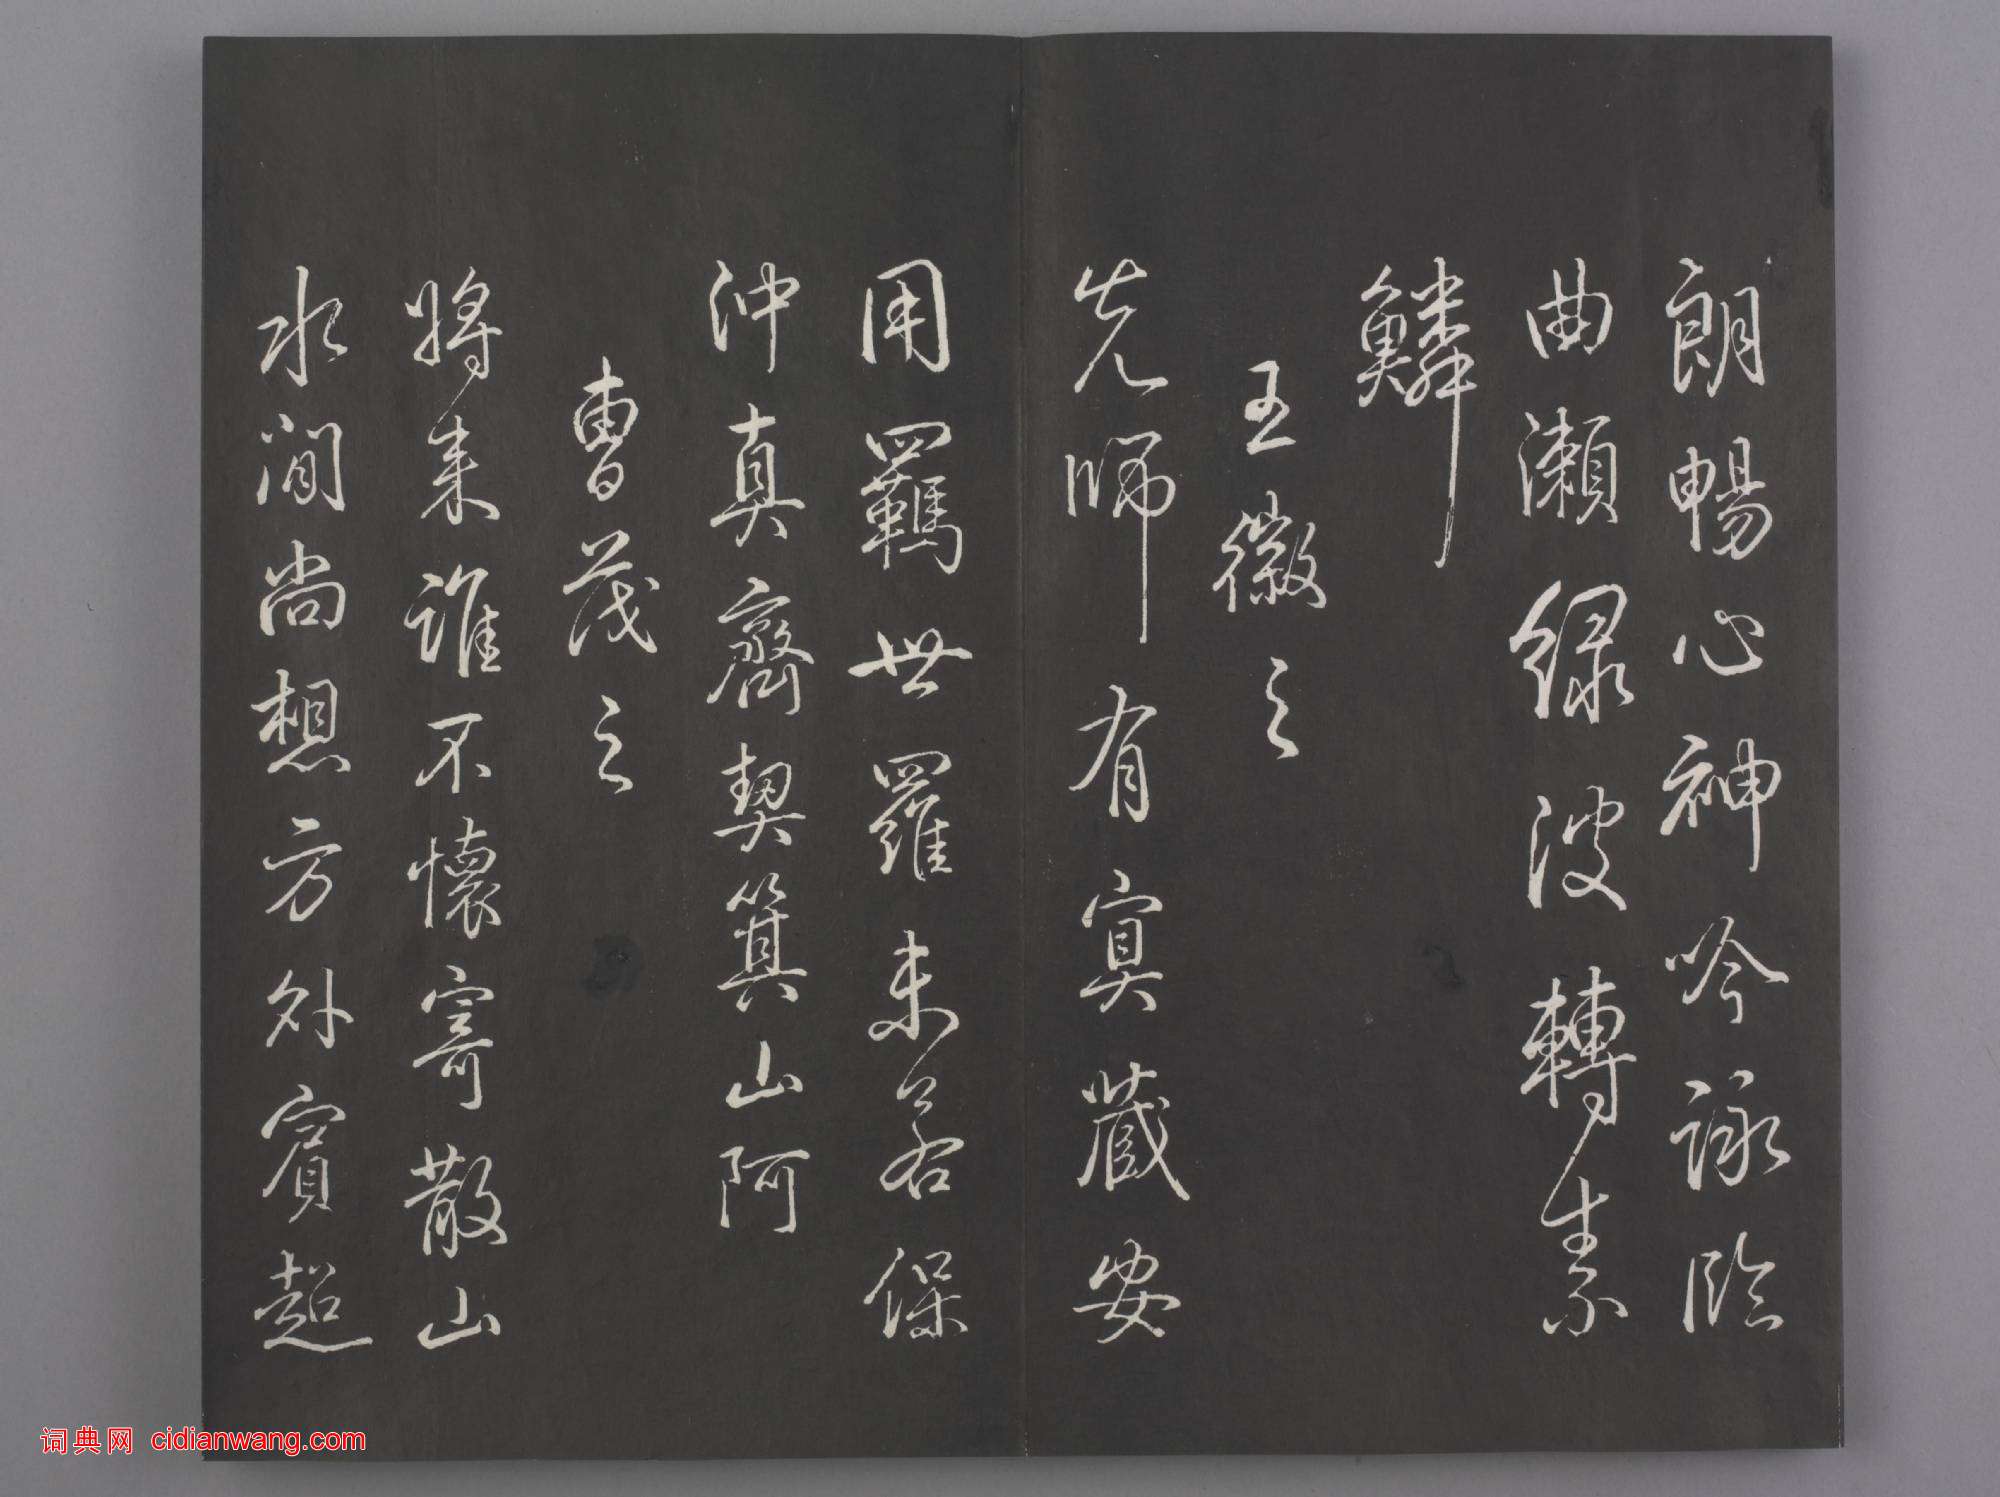 朗暢心神吟詠臨
曲瀨綠波轉素
鱗
王徽之
先師有冥藏安
用羈世羅未若保
沖真齊契箕山阿
曹茂之
時來誰不懷寄散山
水間尚想方外賓超
词典网 cidianwang.com